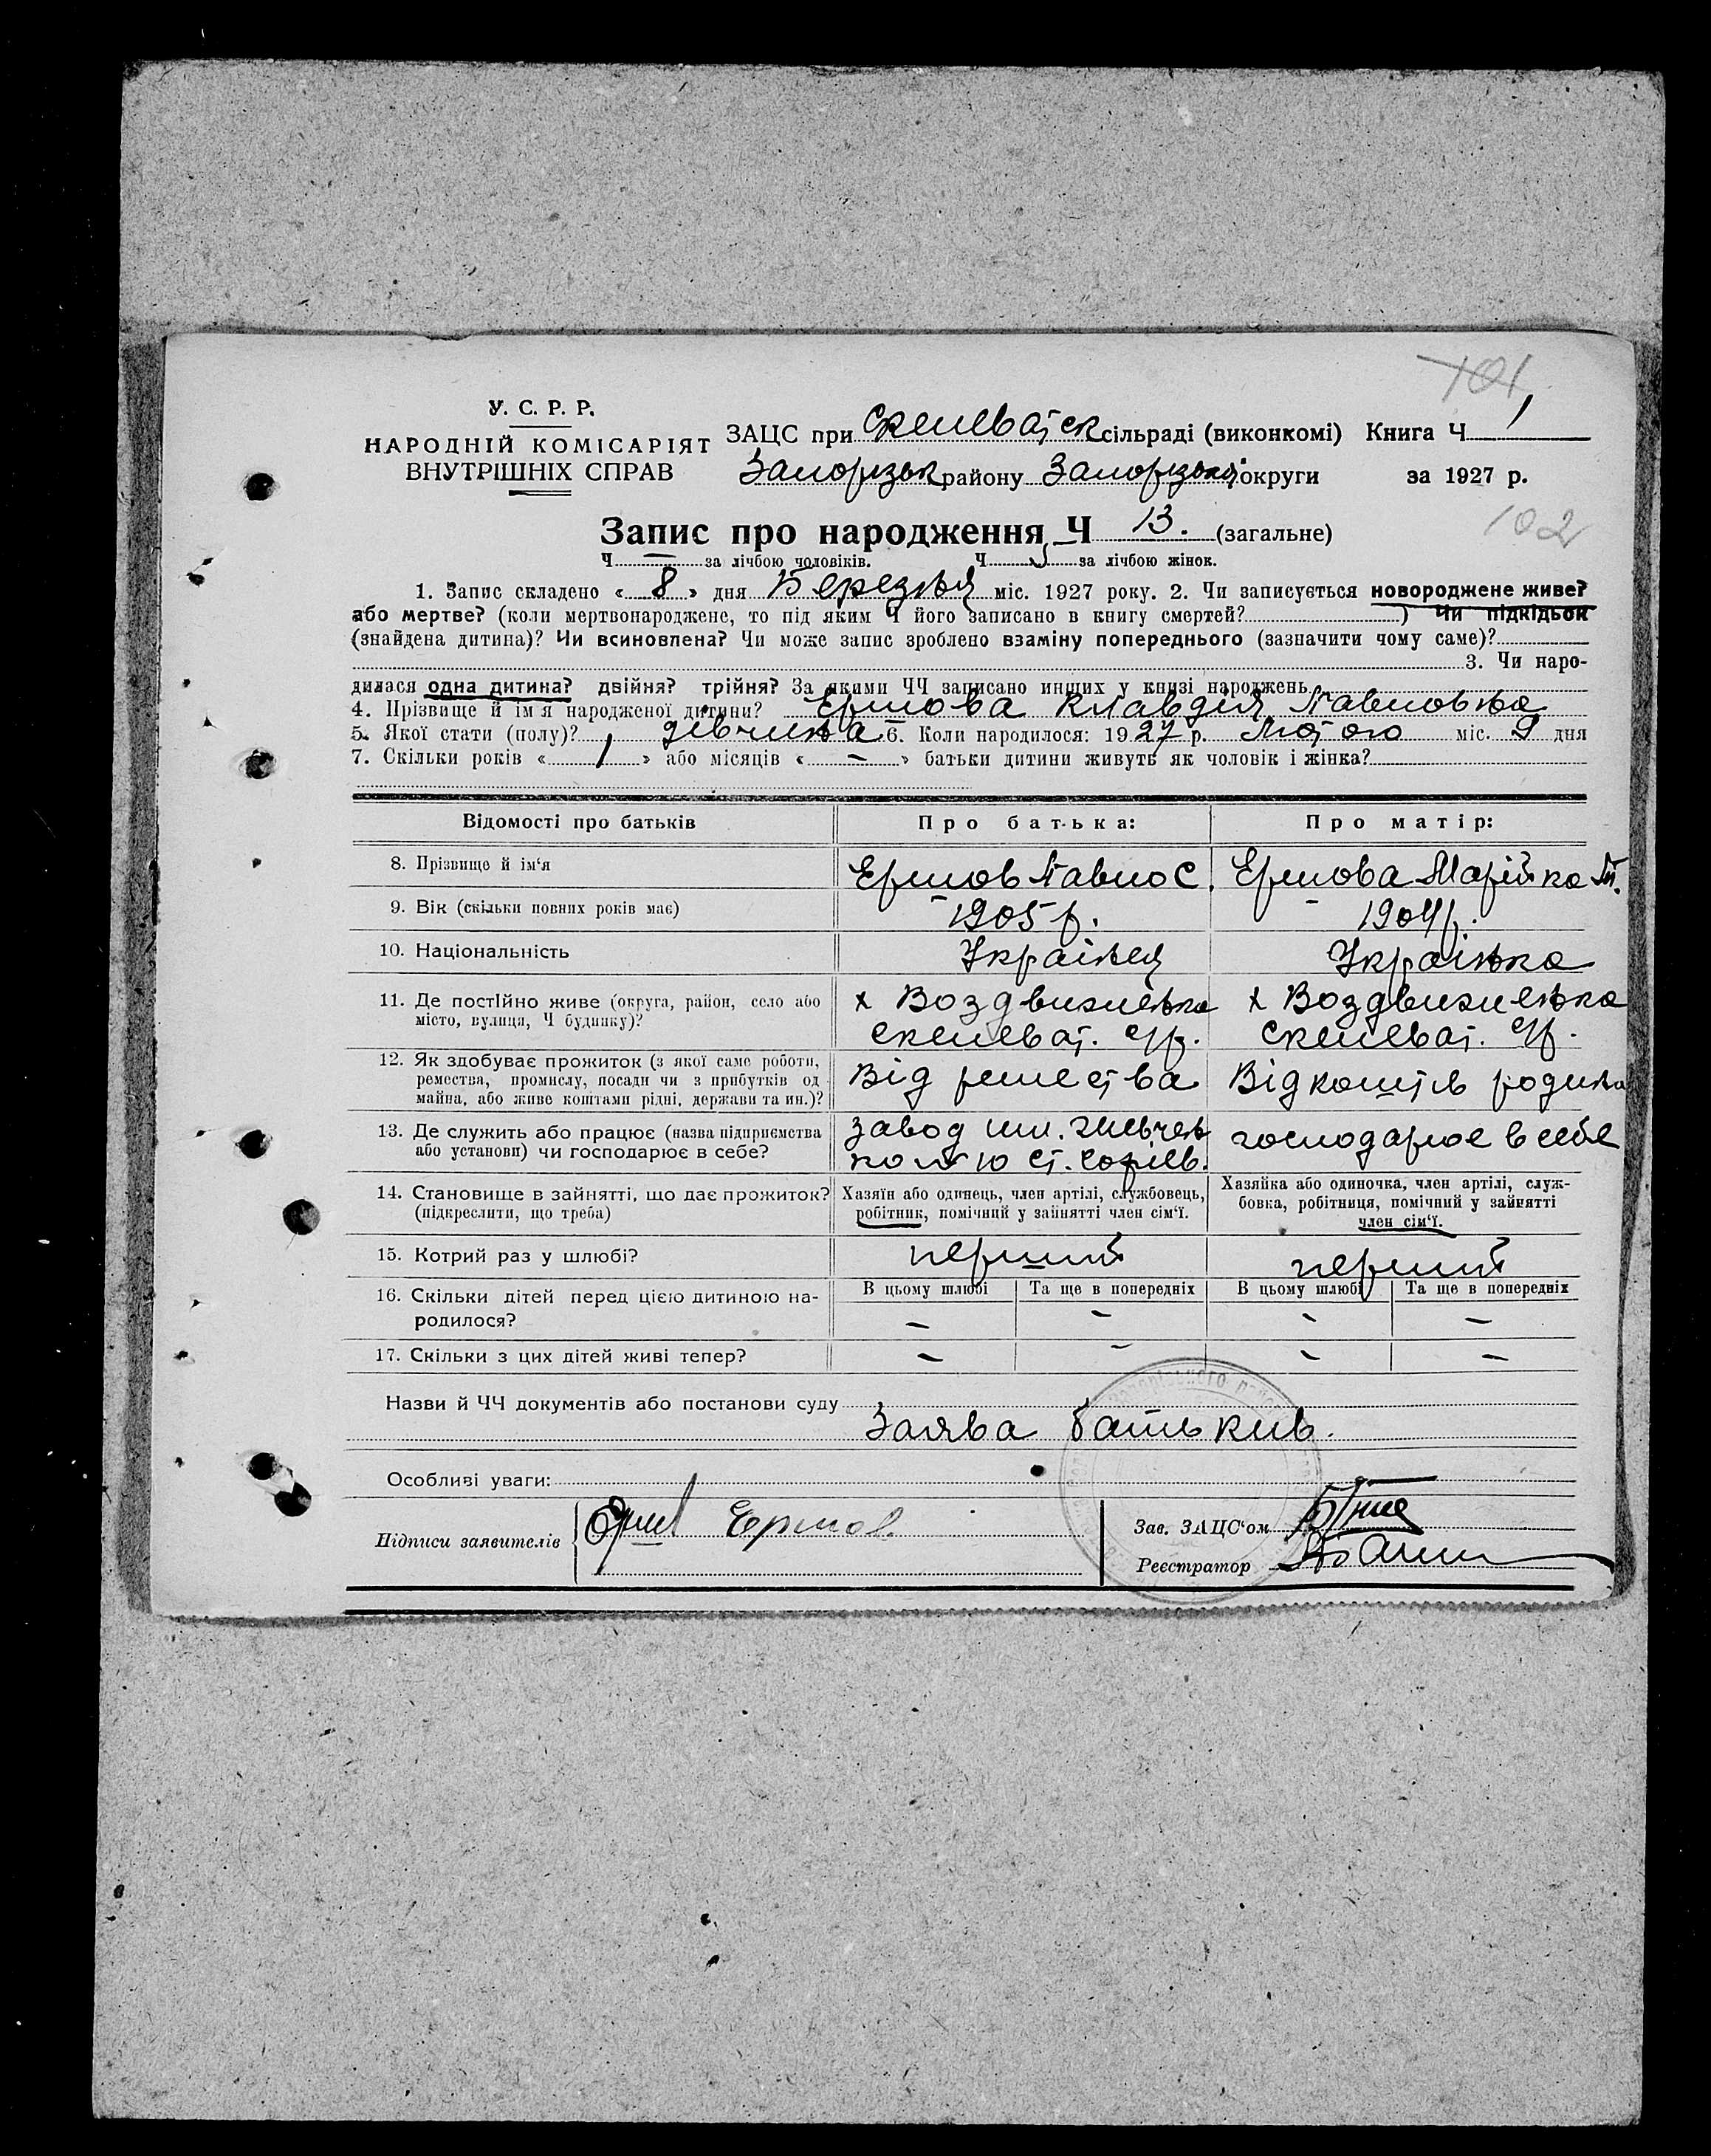 101
У. С. Р. Р.
НАРОДНІЙ КОМІСАРІЯТ
ВНУТРІШНІХ СПРАВ
ЗАЦС при Скелеватск сільраді (виконкомі) Книга Ч 1
Запорізьк району Запорізької округи за 1927 р.
102
Запис про народження Ч 13. (загальне)
Ч — за лічбою чоловіків. Ч 5 за лічбою жінок.
1. Запис складено « 8 » дня Березня міс. 1927 року. 2. Чи записується новороджене живе?
або мертве? (коли мертвонароджене, то під яким Ч його записано в книгу смертей? ) Чи підкідьок
(знайдена дитина)? Чи всиновлена? Чи може запис зроблено взаміну попереднього (зазначити чому саме)?
3. Чи наро-
дилася одна дитина? двійня? трійня? За якими ЧЧ записано инщих у книзі народжень
4. Прізвище й ім'я народженої дитини? Ершова Клавдія Павловна
5. Якої стати (полу)? дівчина 6. Коли народилося: 1927 р. Лютого міс. 9 дня
7. Скільки років « 1 » або місяців « — » батьки дитини живуть як чоловік і жінка?
Відомості про батьків Про батька: Про матір:
8. Прізвище й ім'я Ершов Павло С. Ершова Марійка
9. Вік (скільки повних років має) 1905 р. 1904 р.
10. Національність Українец Українка
11. Де постійно живе (округа, район, село або х Воздвиженка х Воздвиженка
місто, вулиця, Ч будинку)? Скелеват. с/р. Скелеват. с/р.
12. Як здобуває прожиток (з якої саме роботи, Від ремества Від коштів родини
ремества, промислу, посади чи з прибутків од
майна, або живе коштами рідні, держави та ин.)?
13. Де служить або працює (назва підприємства завод им. Шевчен господарює в себе
або установи) чи господарює в себе? ст. Софіев.
14. Становище в зайнятті, що дає прожиток? Хазяїн або одинець, член артілі, службовець, Хазяйка або одиночка, член артілі, служ-
(підкреслити, що треба) робітник, помічний у зайнятті член сім'ї. бовка, робітниця, помічний у зайнятті
член сім'ї.
15. Котрий раз у шлюбі? перший перший
16. Скільки дітей перед цією дитиною на- В цьому шлюбі Та ще в попередніх В цьому шлюбі Та ще в попередніх
родилося? — — — —
17. Скільки з цих дітей живі тепер? — — — —
Назви й ЧЧ документів або постанови суду
Заява батьків.
Особливі уваги:
Підписи заявителів Ершов
Зав. ЗАЦС'ом
Реєстратор